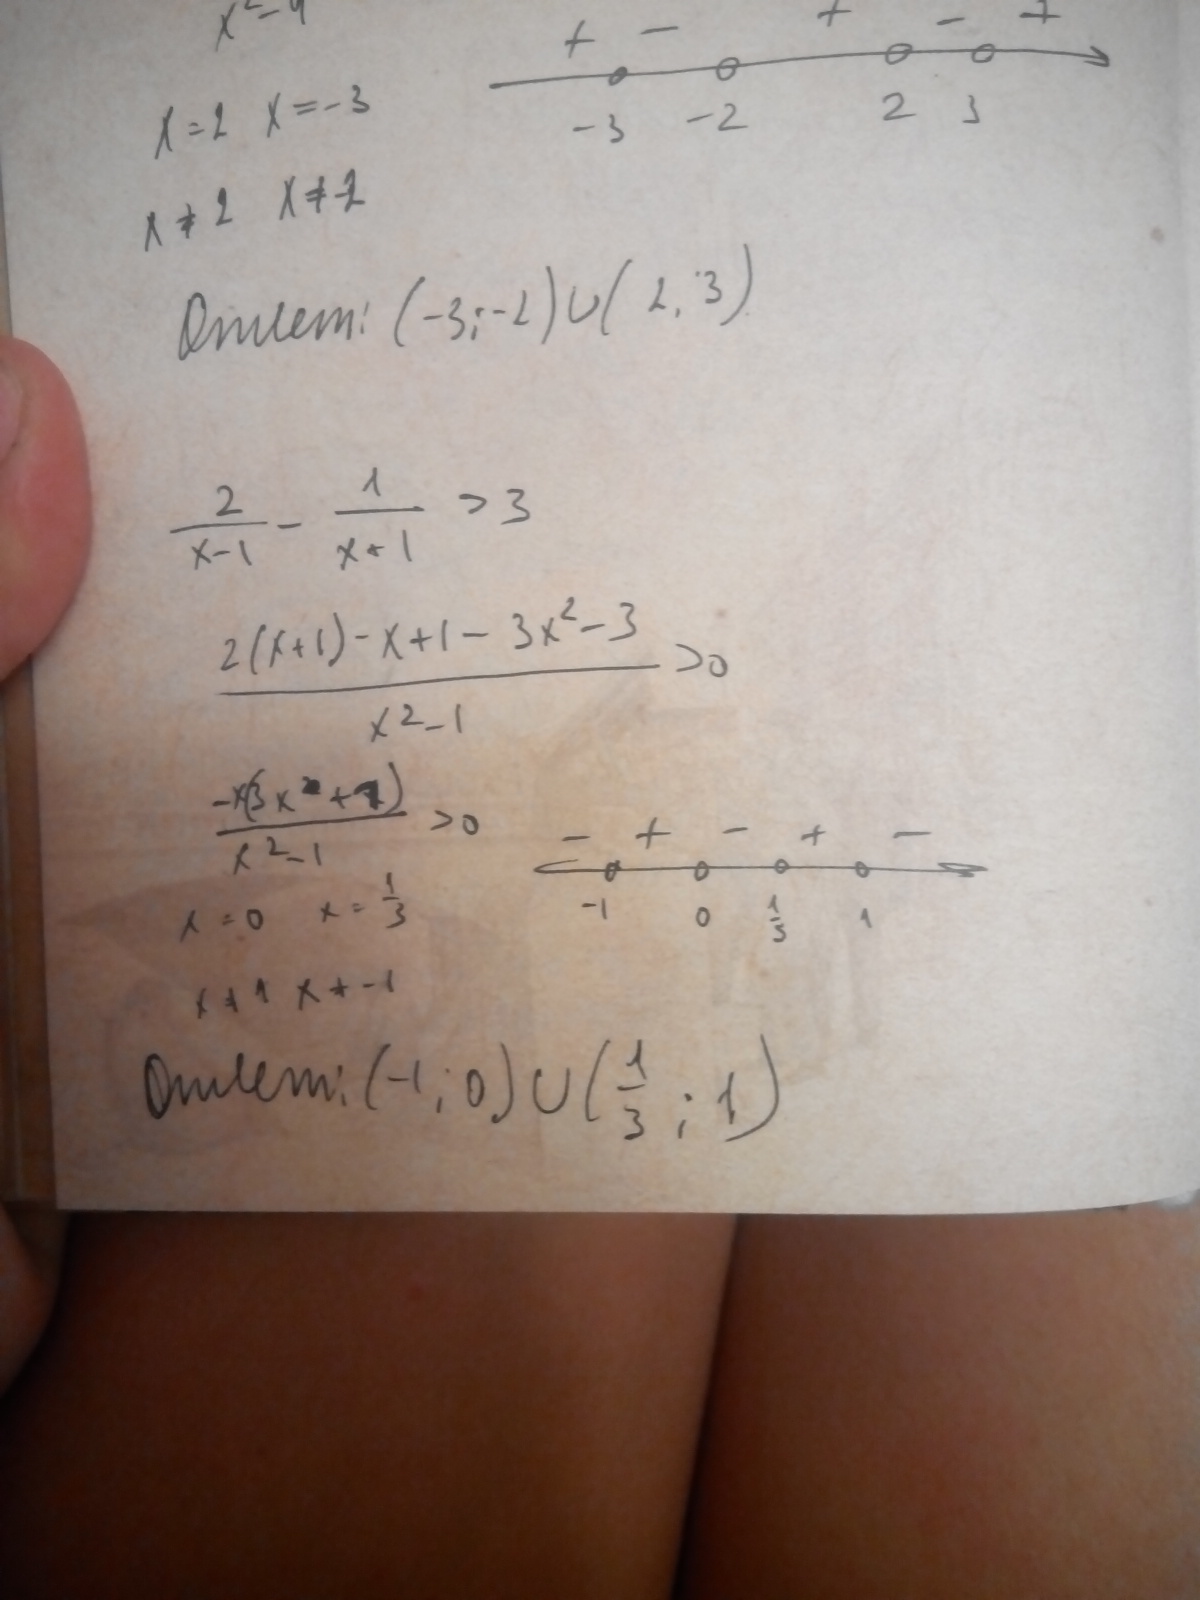 x²-4
+ - + - +
-3 -2 2 3
x=2 x=-3
x≠2 x≠-2
Ответ: (-3;-2)∪(2,3)
2/(x-1) - 1/(x+1) >3
(2(x+1)-x+1-3x²-3)/(x²-1) >0
-x(3x+1)/(x²-1) >0
- + - + -
-1 0 1/3 1
x=0 x=1/3
x≠1 x≠-1
Ответ: (-1;0)∪(1/3;1)